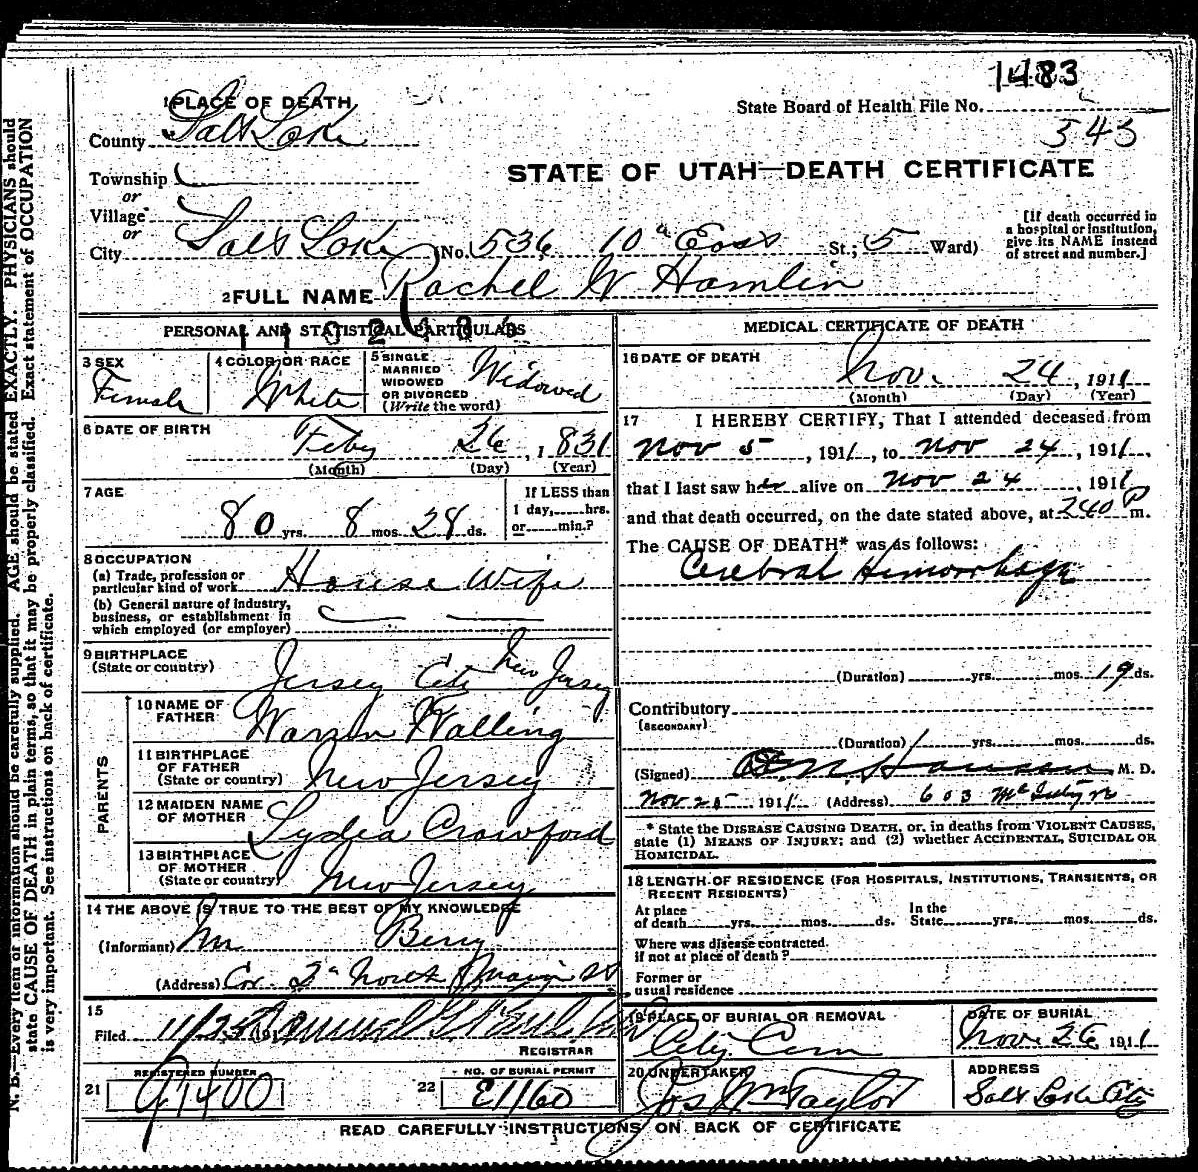 1483
State Board of Health File No.
543
1 PLACE OF DEATH
County Salt Lake
STATE OF UTAH—DEATH CERTIFICATE
Township
or
Village
or
City Salt Lake (No. 536 10th East St.; 5 Ward)
[If death occurred in
a hospital or institution,
give its NAME instead
of street and number.]
2 FULL NAME Rachel W Hamlin
PERSONAL AND STATISTICAL PARTICULARS
3 SEX
Female
4 COLOR OR RACE
White
5 SINGLE
MARRIED
WIDOWED
OR DIVORCED
(Write the word)
Widowed
6 DATE OF BIRTH
Feby 26, 1831
(Month) (Day) (Year)
7 AGE
80 yrs. 8 mos. 28 ds.
If LESS than
1 day,......hrs.
or......min.?
8 OCCUPATION
(a) Trade, profession or
particular kind of work House Wife
(b) General nature of industry,
business, or establishment in
which employed (or employer)
9 BIRTHPLACE
(State or country)
Jersey City New Jersey
PARENTS
10 NAME OF
FATHER
Warren Walling
11 BIRTHPLACE
OF FATHER
(State or country)
New Jersey
12 MAIDEN NAME
OF MOTHER
Lydea Crawford
13 BIRTHPLACE
OF MOTHER
(State or country)
New Jersey
14 THE ABOVE IS TRUE TO THE BEST OF MY KNOWLEDGE
(Informant) Berry
(Address) Cor. 2d North
15
Filed
REGISTRAR
21 REGISTERED NUMBER
22 NO. OF BURIAL PERMIT
E1160
MEDICAL CERTIFICATE OF DEATH
16 DATE OF DEATH
Nov. 24, 1911
(Month) (Day) (Year)
17 I HEREBY CERTIFY, That I attended deceased from
Nov 5, 1911, to Nov 24, 1911,
that I last saw her alive on Nov 24 1911
and that death occurred, on the date stated above, at 240 P m.
The CAUSE OF DEATH* was as follows:
Cerebral Hemorrhage
(Duration) yrs. mos. 19 ds.
Contributory
(SECONDARY)
(Duration) yrs. mos. ds.
(Signed) M. D.
Nov 25 1911 (Address) 603 McIntyre
* State the DISEASE CAUSING DEATH, or, in deaths from VIOLENT CAUSES,
state (1) MEANS OF INJURY; and (2) whether ACCIDENTAL, SUICIDAL OR
HOMICIDAL.
18 LENGTH OF RESIDENCE (FOR HOSPITALS, INSTITUTIONS, TRANSIENTS, OR
RECENT RESIDENTS)
At place
of death yrs. mos. ds.
In the
State yrs. mos. ds.
Where was disease contracted.
if not at place of death?
Former or
usual residence
19 PLACE OF BURIAL OR REMOVAL
City Cem
DATE OF BURIAL
Nov. 26 1911
20 UNDERTAKER
Jos Wm Taylor
ADDRESS
Salt Lake City
READ CAREFULLY INSTRUCTIONS ON BACK OF CERTIFICATE
N. B.—Every item of information should be carefully supplied. AGE should be stated EXACTLY. PHYSICIANS should
state CAUSE OF DEATH in plain terms, so that it may be properly classified. Exact statement of OCCUPATION
is very important. See instructions on back of certificate.